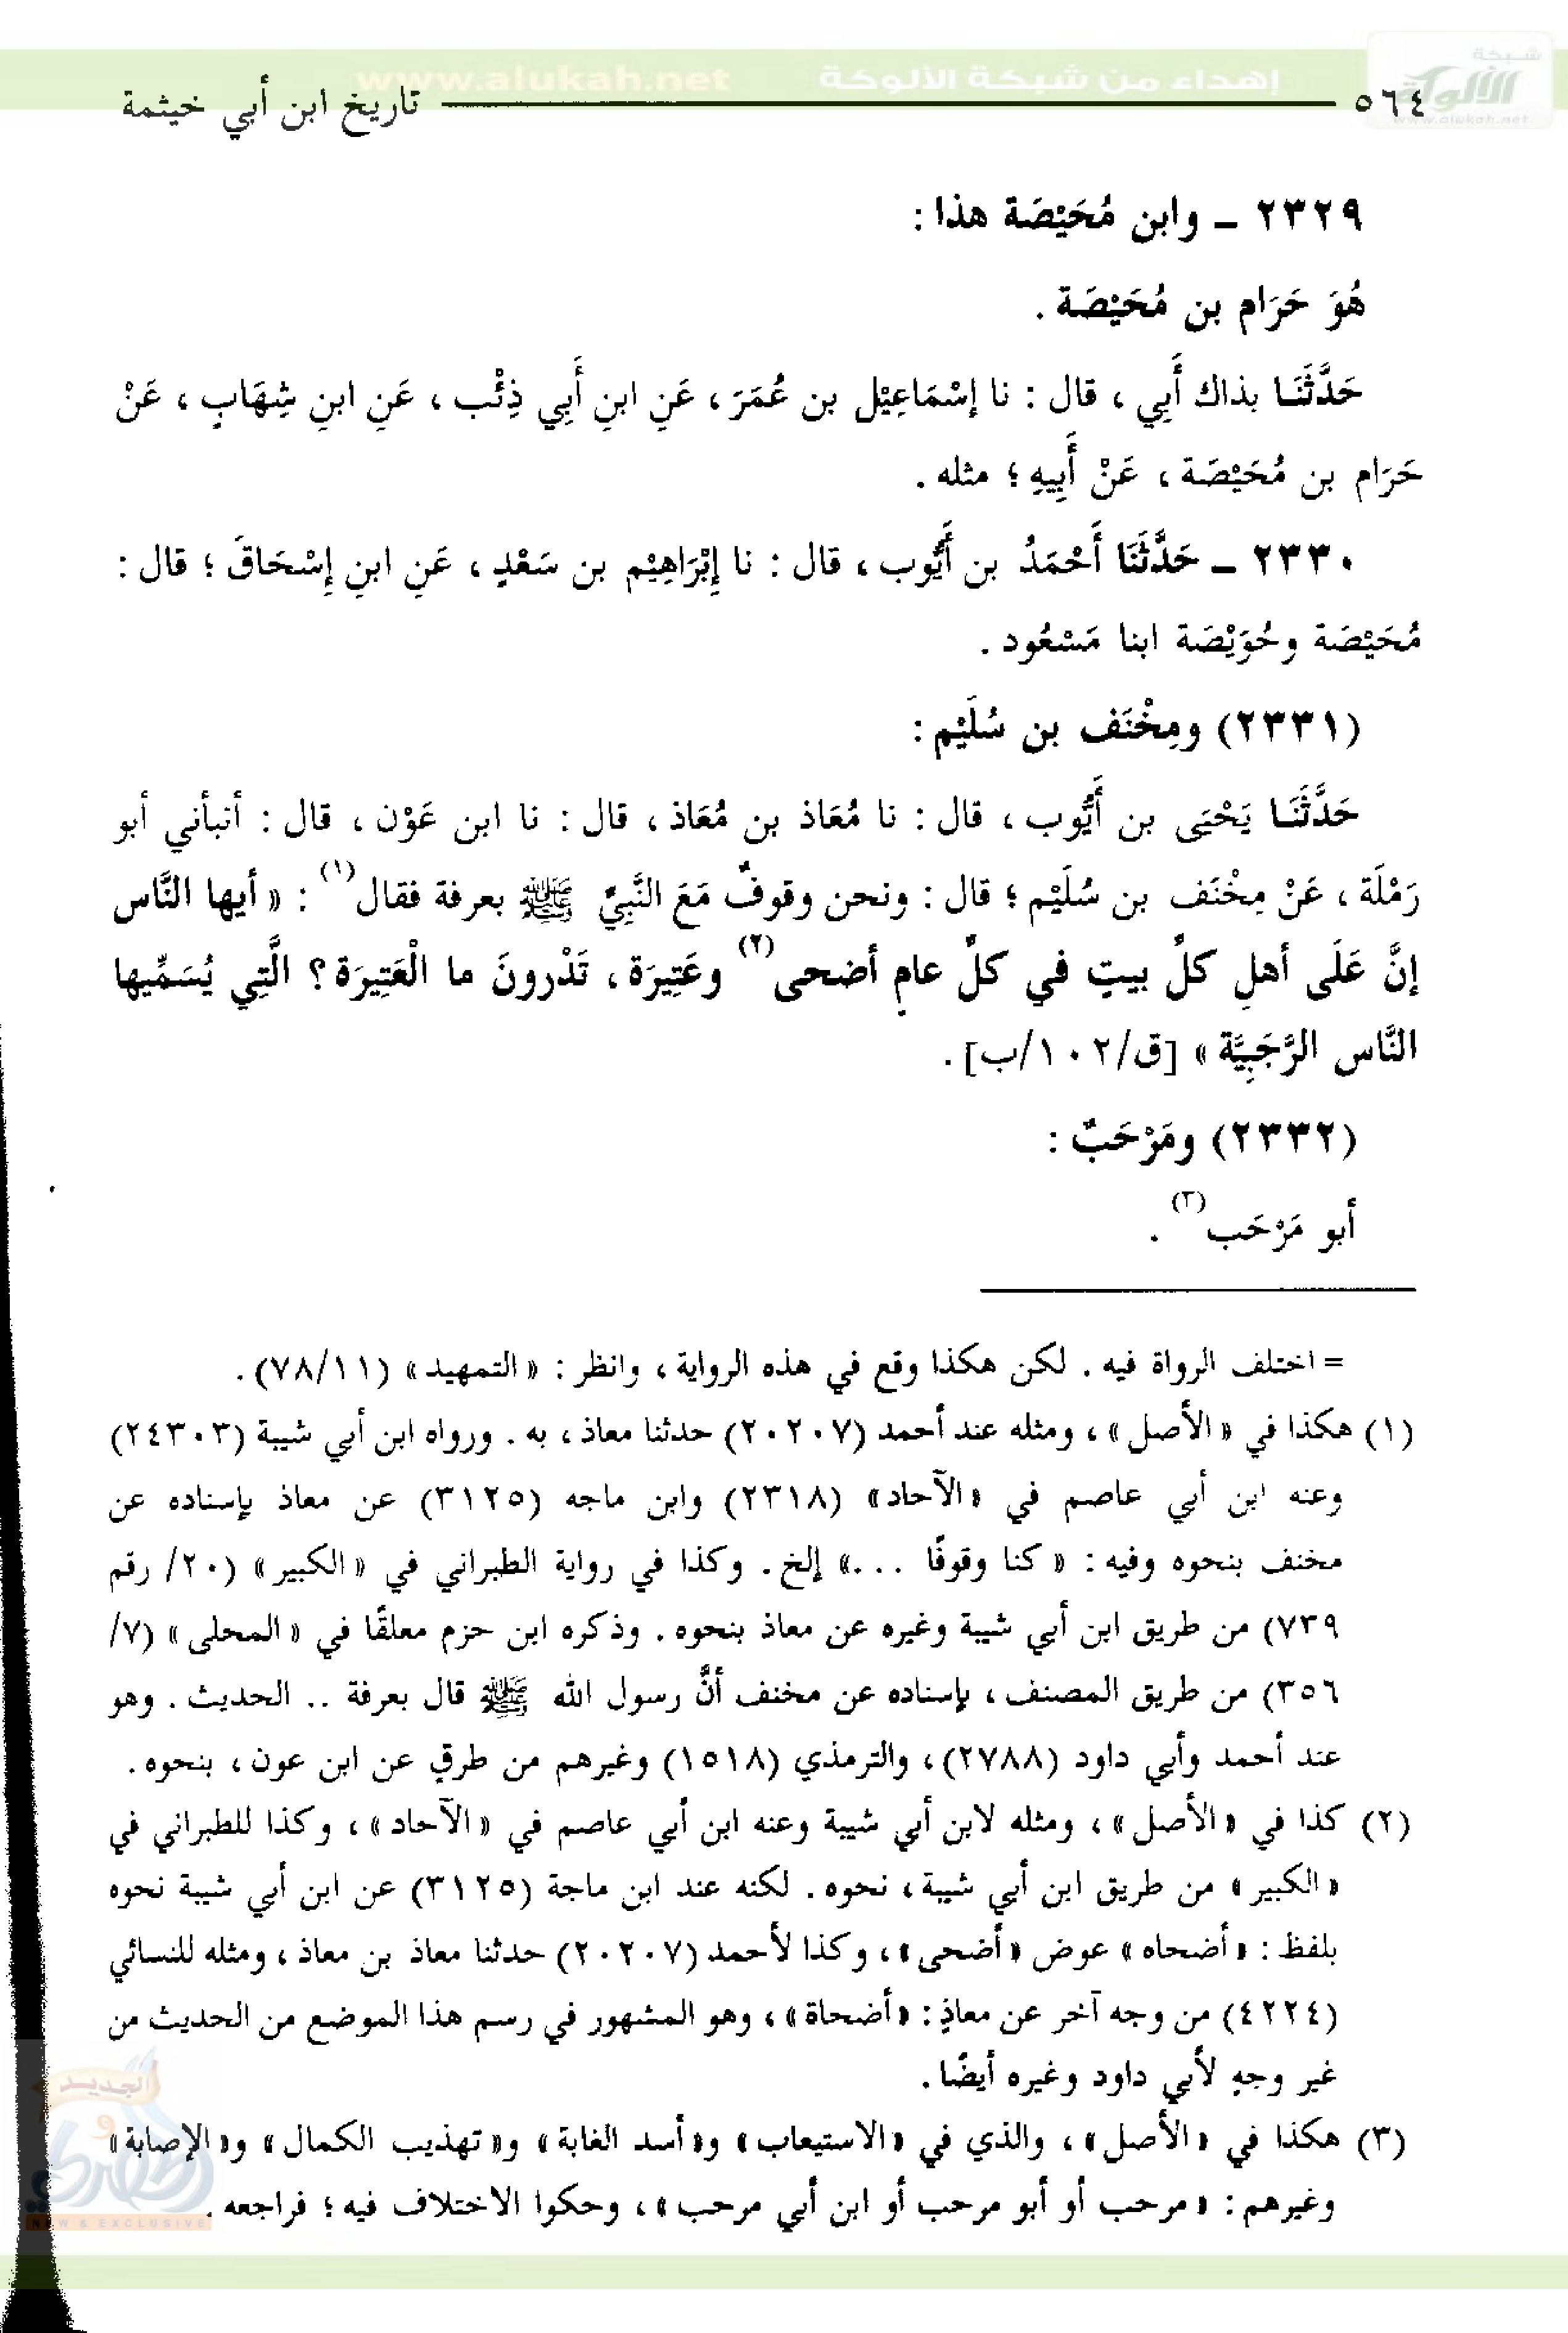 www.alukah.net إهداء من شبكة الألوكة
شبكة
الألوكة
www.alukah.net
٥٦٤ تاريخ ابن أبي خيثمة
٢٣٢٩ - وابن مُحَيْصَة هذا :
هُوَ حَرَام بن مُحَيْصَة .
حَدَّثَنَا بذاك أَبِي ، قال : نا إِسْمَاعِيْل بن عُمَرَ ، عَنِ ابنِ أَبِي ذِئْب ، عَنِ ابنِ شِهَابٍ ، عَنْ
حَرَام بن مُحَيْصَة ، عَنْ أَبِيهِ ؛ مثله .
٢٣٣٠ - حَدَّثَنَا أَحْمَدُ بن أَيُّوب ، قال : نا إِبْرَاهِيْم بن سَعْدٍ ، عَنِ ابنِ إِسْحَاقَ ؛ قال :
مُحَيْصَة وحُوَيْصَة ابنا مَسْعُود .
(٢٣٣١) ومِخْنَف بن سُلَيْم :
حَدَّثَنَا يَحْيَى بن أَيُّوب ، قال : نا مُعَاذ بن مُعَاذ ، قال : نا ابن عَوْن ، قال : أنبأني أبو
رَمْلَة ، عَنْ مِخْنَف بن سُلَيْم ؛ قال : ونحن وقوفٌ مَعَ النَّبِيِّ ﷺ بعرفة فقال(١) : « أيها النَّاس
إنَّ عَلَى أهلِ كلِّ بيتٍ في كلِّ عامٍ أضحى(٢) وعَتِيرَة ، تَدْرونَ ما الْعَتِيرَة ؟ الَّتِي يُسَمِّيها
النَّاس الرَّجَبِيَّة » [ق/١٠٢/ب] .
(٢٣٣٢) ومَرْحَبٌ :
أبو مَرْحَب(٣) .
= اختلف الرواة فيه . لكن هكذا وقع في هذه الرواية ، وانظر : « التمهيد » (٧٨/١١) .
(١) هكذا في « الأصل » ، ومثله عند أحمد (٢٠٢٠٧) حدثنا معاذ ، به . ورواه ابن أبي شيبة (٢٤٣٠٣)
وعنه ابن أبي عاصم في «الآحاد» (٢٣١٨) وابن ماجه (٣١٢٥) عن معاذ بإسناده عن
مخنف بنحوه وفيه : « كنا وقوفًا ...» إلخ. وكذا في رواية الطبراني في « الكبير » (٢٠/ رقم
٧٣٩) من طريق ابن أبي شيبة وغيره عن معاذ بنحوه . وذكره ابن حزم معلقًا في « المحلى » (٧/
٣٥٦) من طريق المصنف ، بإسناده عن مخنف أنَّ رسول الله ﷺ قال بعرفة .. الحديث . وهو
عند أحمد وأبي داود (٢٧٨٨) ، والترمذي (١٥١٨) وغيرهم من طرقٍ عن ابن عون ، بنحوه .
(٢) كذا في « الأصل » ، ومثله لابن أبي شيبة وعنه ابن أبي عاصم في « الآحاد » ، وكذا للطبراني في
« الكبير » من طريق ابن أبي شيبة ، نحوه . لكنه عند ابن ماجة (٣١٢٥) عن ابن أبي شيبة نحوه
بلفظ : « أضحاه » عوض « أضحى » ، وكذا لأحمد (٢٠٢٠٧) حدثنا معاذ بن معاذ ، ومثله للنسائي
(٤٢٢٤) من وجه آخر عن معاذٍ : « أضحاة » ، وهو المشهور في رسم هذا الموضع من الحديث من
غير وجهٍ لأبي داود وغيره أيضًا .
(٣) هكذا في « الأصل » ، والذي في « الاستيعاب » و« أسد الغابة » و« تهذيب الكمال » و« الإصابة »
وغيرهم : « مرحب أو أبو مرحب أو ابن أبي مرحب » ، وحكوا الاختلاف فيه ؛ فراجعه .
الجديد
و
NEW & EXCLUSIVE